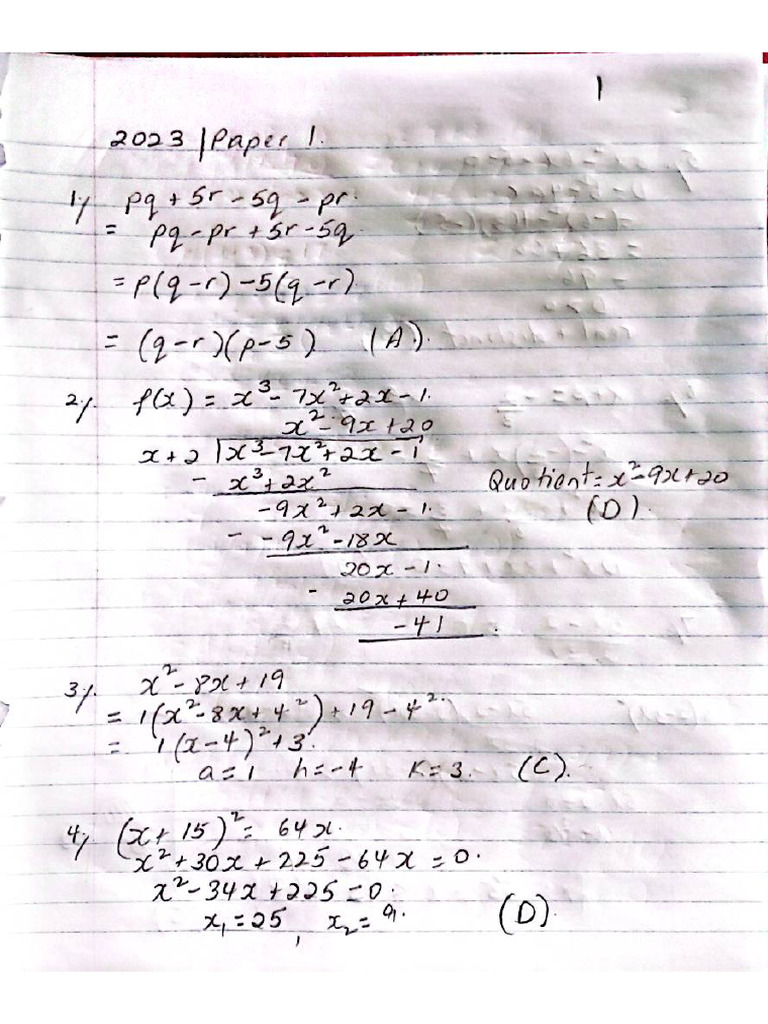 1
2023 | Paper 1.
1/ pq + 5r - 5q - pr.
= pq - pr + 5r - 5q
= p(q - r) - 5(q - r)
= (q - r)(p - 5) (A).
2/. f(x) = x³ - 7x² + 2x - 1.
x² - 9x + 20
x + 2 | x³ - 7x² + 2x - 1
- x³ + 2x² Quotient = x² - 9x + 20
- 9x² + 2x - 1. (D).
- - 9x² - 18x
20x - 1.
- 20x + 40
- 41.
3/. x² - 8x + 19
= 1(x² - 8x + 4²) + 19 - 4².
= 1(x - 4)² + 3.
a = 1 h = -4 K = 3. (C).
4/ (x + 15)² = 64x.
x² + 30x + 225 - 64x = 0.
x² - 34x + 225 = 0.
x₁ = 25, x₂ = 9. (D).